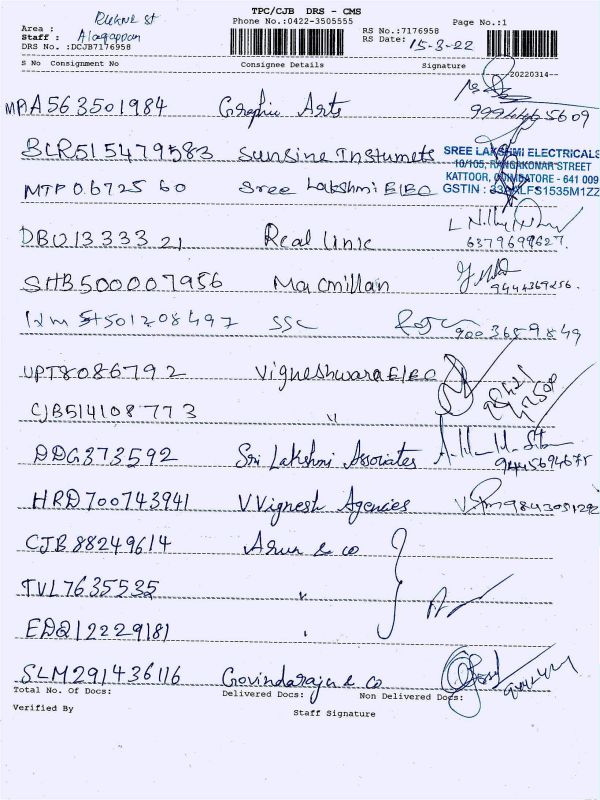 TPC/CJB DRS - CMS
Phone No.:0422-3505555
Page No.:1
Area : Rukne st
Staff : Alagappan
DRS No. :DCJB7176958
RS No.:7176958
RS Date: 15-3-22
S No Consignment No Consignee Details Signature
20220314--
MAA563501984 Graphic Arts
BLR515479583 Sunsine Instumets
SREE LAKSHMI ELECTRICALS
10/105, RANGAKONAR STREET
KATTOOR, COIMBATORE - 641 009
MTP 06725 60 Sree Lakshmi Elec
DBU13333 21 Real linc
6379699627.
SHB500007956 Macmillan
9444369256.
501208497 SSC
9003659849
UPT8086792 Vigneshwara Elec
CJB514108773 "
DDG373592 Sri Lakshmi Associates
9445694675
HRD700743941 V Vignesh Agencies
CJB 88249614 Arun & co
TVL7635535 "
EDQ12229181 "
SLM291436116 Govindaraju & co
Total No. Of Docs: Delivered Docs: Non Delivered Docs:
Verified By Staff Signature